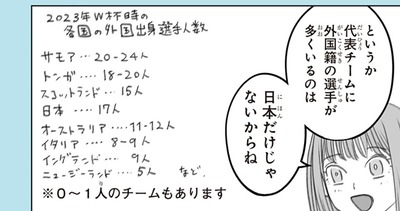 というか
代表チームに
外国籍の選手が
多くいるのは
日本だけじゃ
ないからね
2023年W杯時の
各国の外国出身選手人数
サモア‥‥20-24人
トンガ‥‥18-20人
スコットランド‥‥15人
日本‥‥17人
オーストラリア‥‥11-12人
イタリア‥‥8-9人
イングランド‥‥9人
ニュージーランド‥‥5人 など
※0〜1人のチームもあります